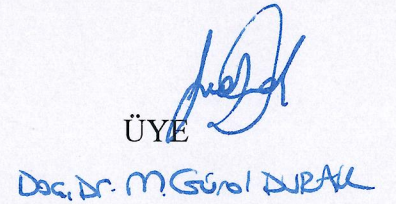 ÜYE
Doç. Dr. M. Gürol DURAK